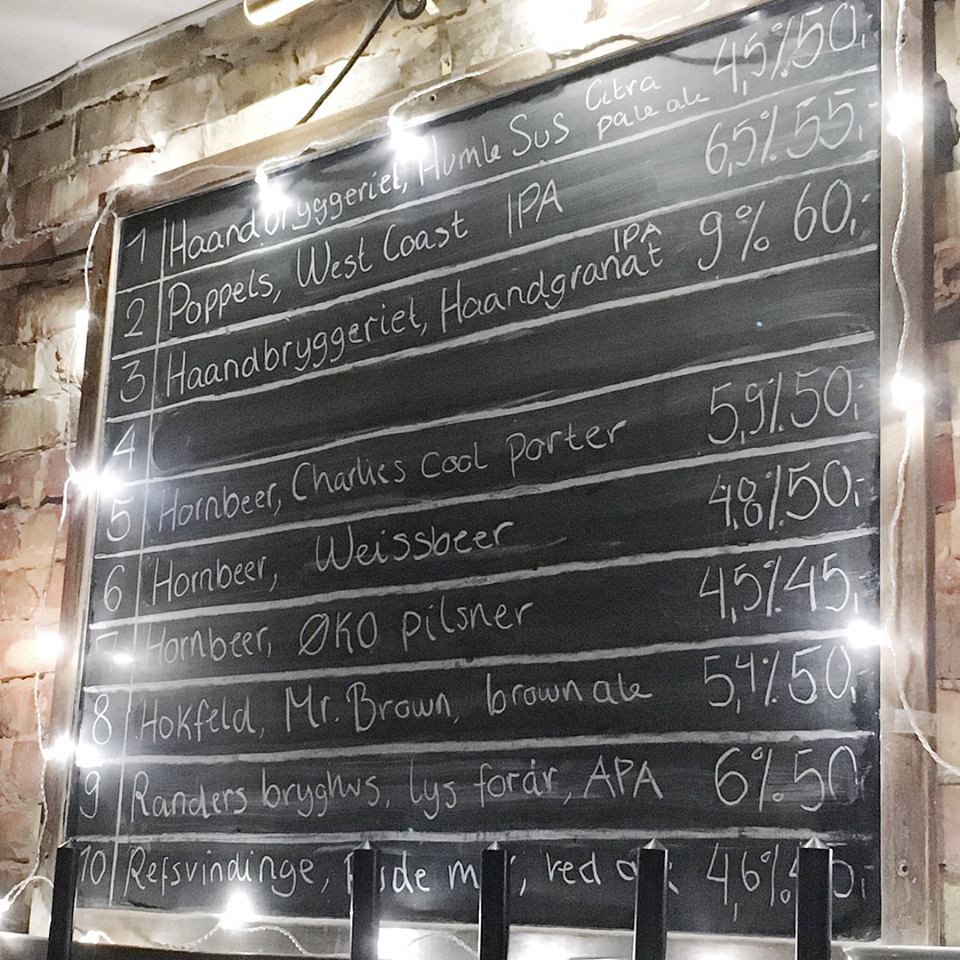 1 Haandbryggeriet, Humle Sus Citra pale ale 4,5% 50,-
2 Poppels, West Coast IPA 6,5% 55,-
3 Haandbryggeriet, Haandgranat IPA 9% 60,-
4
5 Hornbeer, Charlies Cool porter 5,9% 50,-
6 Hornbeer, Weissbeer 4,8% 50,-
7 Hornbeer, ØKO pilsner 4,5% 45,-
8 Hokfeld, Mr. Brown, brown ale 5,4% 50,-
9 Randers bryghus, lys forår, APA 6% 50
10 Refsvindinge, red 4,6%